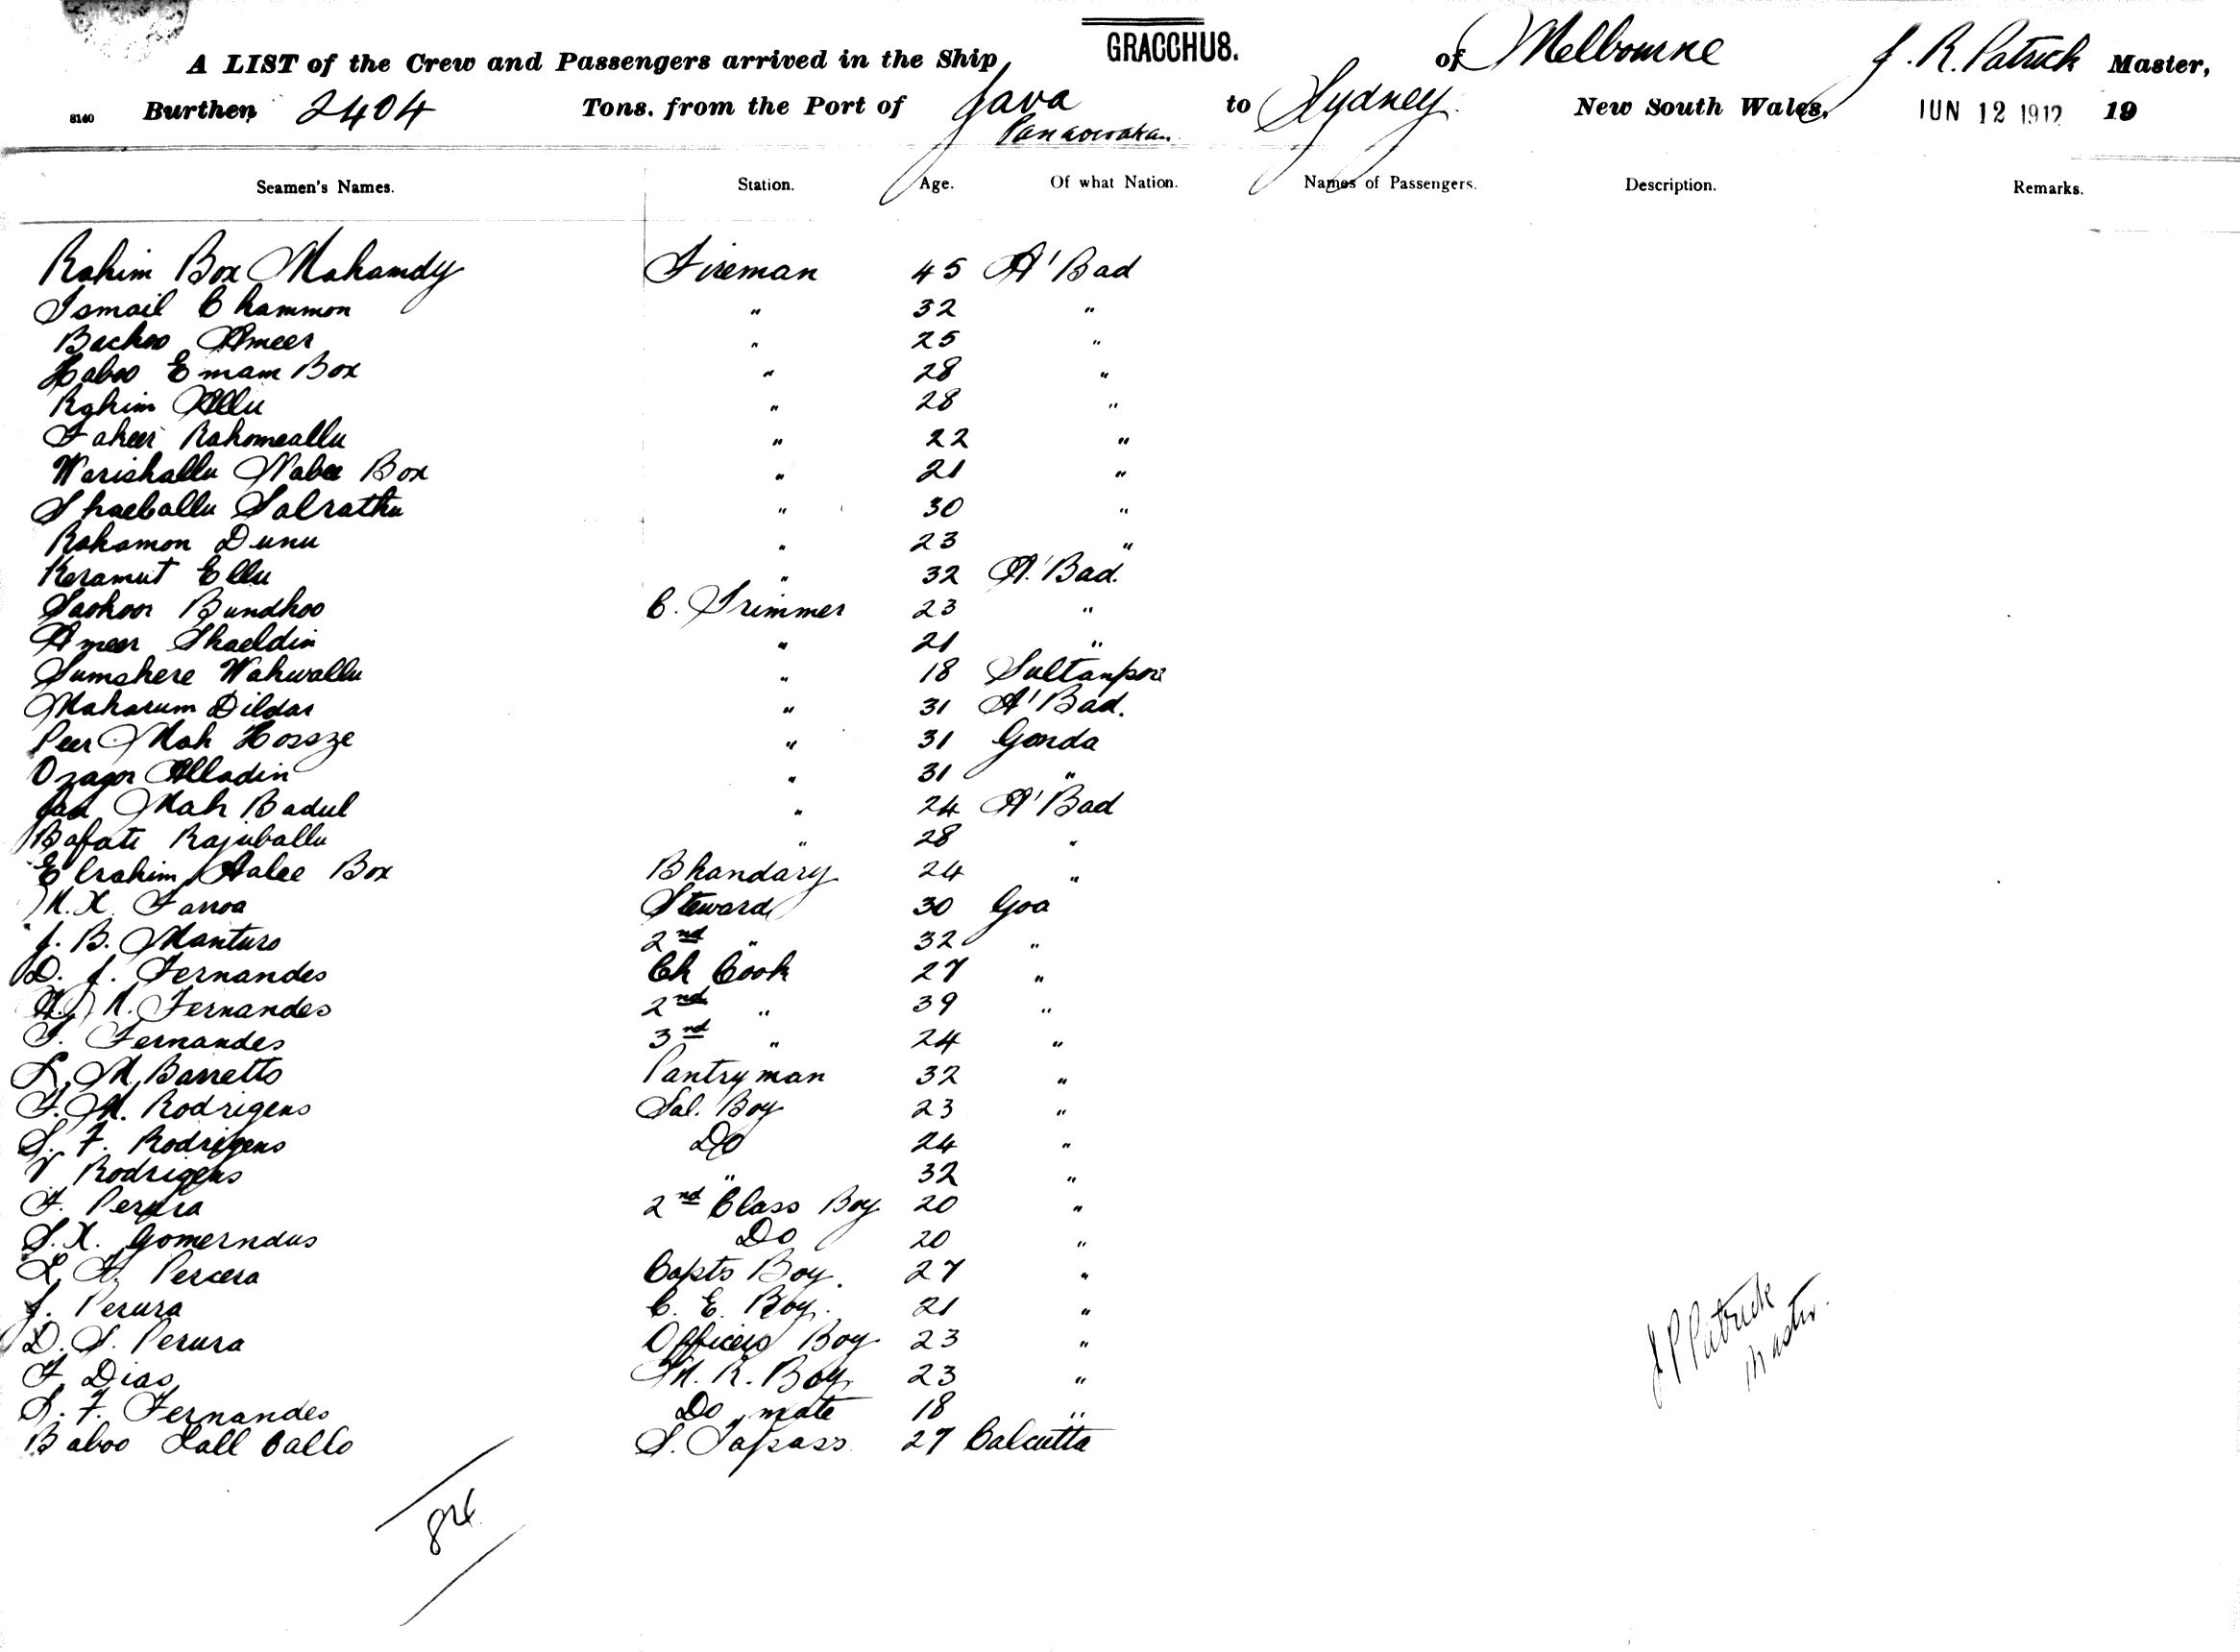 GRACCHUS.
A LIST of the Crew and Passengers arrived in the Ship of Melbourne J. R. Patrick Master,
8140 Burthen 2404 Tons. from the Port of Java to Sydney New South Wales, JUN 12 1912 19
Seamen's Names. Station. Age. Of what Nation. Names of Passengers. Description. Remarks.
Rahim Box Mahamdy Fireman 45 A'Bad
Ismail Chammon " 32 "
Bachoo Ameer " 25 "
Haboo Emam Box " 28 "
Rahim Allu " 28 "
Fakeer Rahomeallu " 22 "
Warishallu Nabee Box " 21 "
Shaeballu Salrathu " 30 "
Rahamon Dunu " 23 "
Keramut Ellu " 32 A'Bad.
Saohoor Bundhoo C. Trimmer 23 "
Ameer Shaeldin " 21 "
Sumshere Wahwallu " 18 Sultanpore
Maharum Dildar " 31 A'Bad.
Peer Mah Hossze " 31 Gonda
Ozagor Alladin " 31 "
Jan Mah Badul " 24 A'Bad
Bafati Rajuballu " 28 "
Ebrahim Aalee Box Bhandary 24 "
M. X. Farroa Steward 30 Goa
J. B. Manturo 2nd " 32 "
D. J. Fernandes Ch Cook 27 "
M. Fernandes 2nd " 39 "
F. Fernandes 3nd " 24 "
L. M. Barretto Pantryman 32 "
F. M. Rodrigens Sal. Boy 23 "
S. F. Rodrigens Do 24 "
V Rodrigens " 32 "
F. Perura 2nd Class Boy 20 "
S. X. Gomerndus Do 20 "
L. F. Percera Capts Boy. 27 "
J. Perura C. E. Boy. 21 "
D. S. Perura Officers Boy 23 "
F. Dias M. R. Boy 23 "
S. F. Fernandes Do mate 18 "
Baboo Lall Callo S. Topass 27 Calcutta
J R Patrick
Master.
84